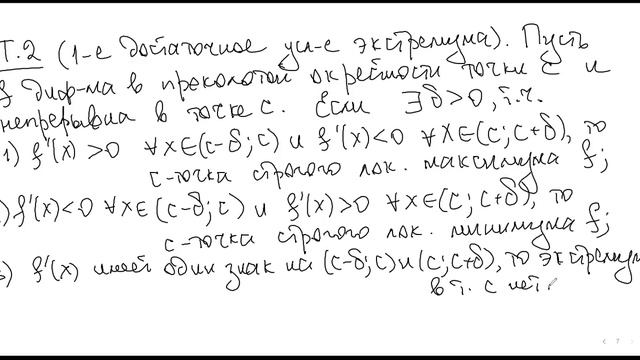 Т.2 (1-е достаточное усл-е экстремума). Пусть
f диф-ма в проколотой окрестности точки c и
непрерывна в точке c. Если ∃δ>0, т.ч.
1) f'(x)>0 ∀x∈(c-δ;c) и f'(x)<0 ∀x∈(c;c+δ), то
c-точка строгого лок. максимума f;
) f'(x)<0 ∀x∈(c-δ;c) и f'(x)>0 ∀x∈(c;c+δ), то
c-точка строгого лок. минимума f;
) f'(x) имеет один знак на (c-δ;c) и (c;c+δ), то экстремум
в т. c нет.
7